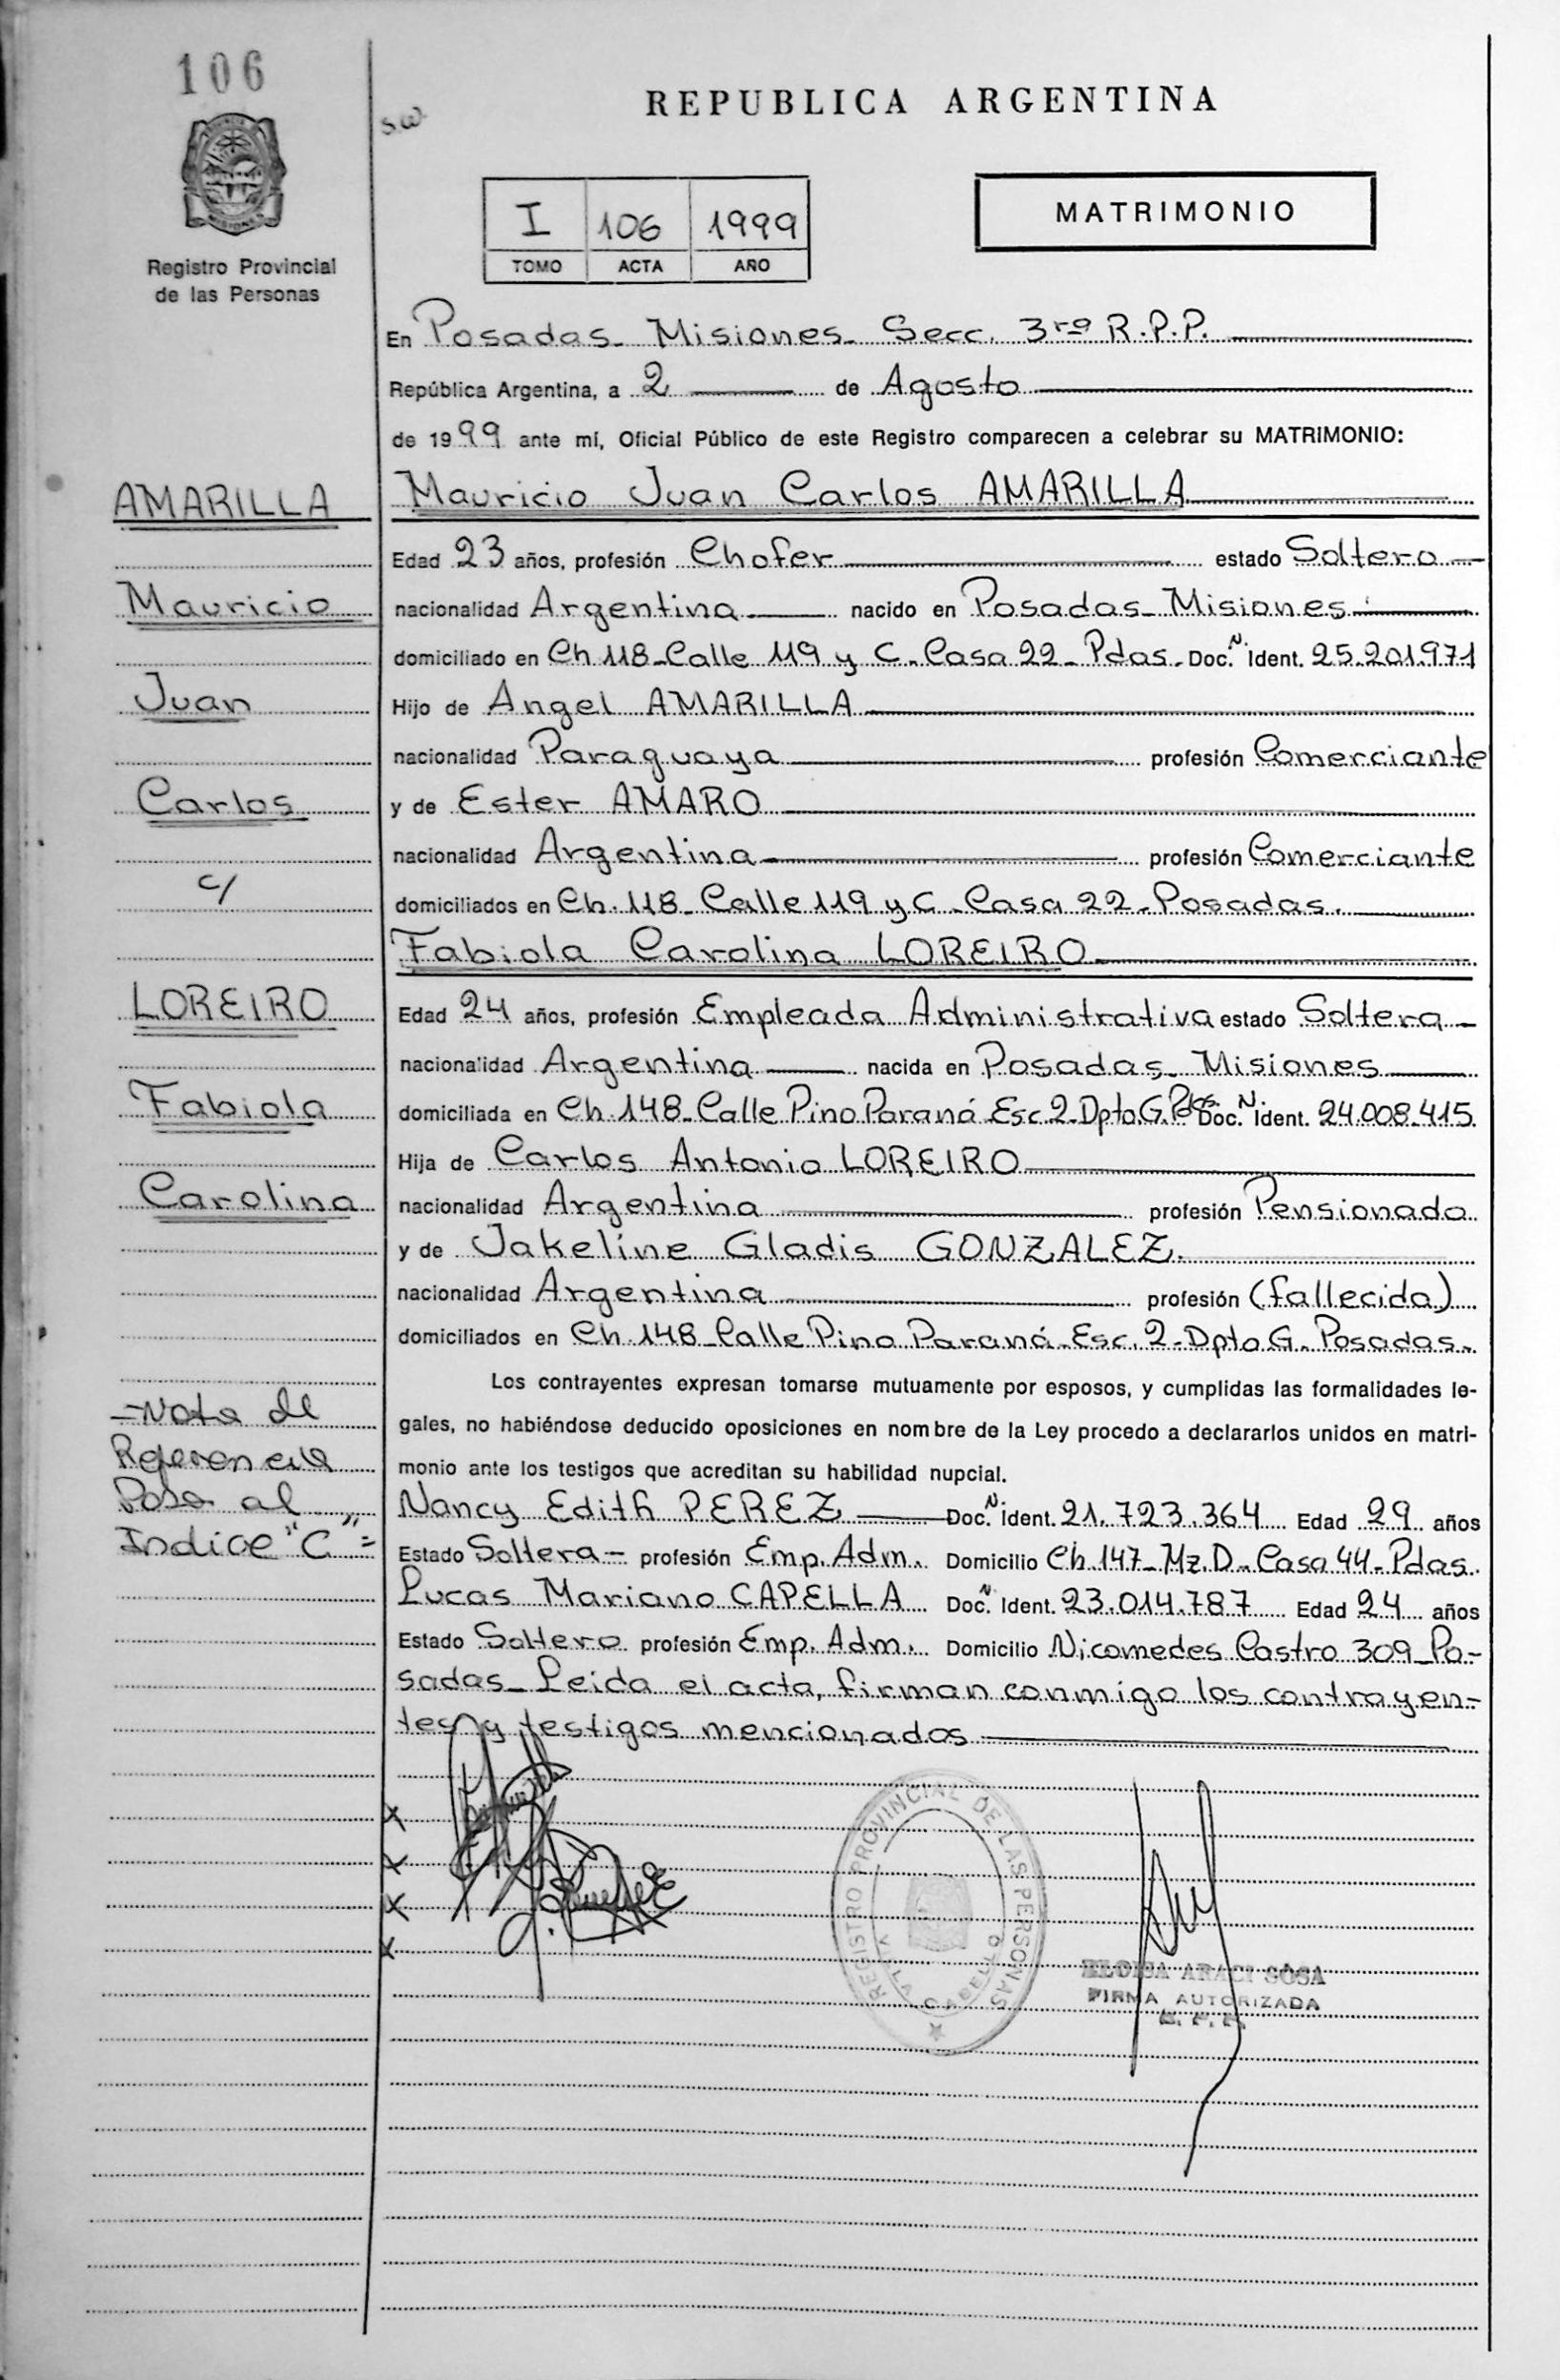 106
REPUBLICA ARGENTINA
S.W.
I 106 1999
TOMO ACTA AÑO
MATRIMONIO
Registro Provincial
de las Personas
En Posadas - Misiones - Secc. 3ra R.P.P.
República Argentina, a 2 de Agosto
de 1999 ante mí, Oficial Público de este Registro comparecen a celebrar su MATRIMONIO:
AMARILLA
Mauricio
Juan
Carlos
c/
LOREIRO
Fabiola
Carolina
-Nota de
Referencia
Pasa al
Indice "C"=
Mauricio Juan Carlos AMARILLA
Edad 23 años, profesión Chofer estado Soltero
nacionalidad Argentina nacido en Posadas - Misiones
domiciliado en Ch 118 - Calle 119 y C - Casa 22 - Pdas. Doc. N. Ident. 25.201.971
Hijo de Angel AMARILLA
nacionalidad Paraguaya profesión Comerciante
y de Ester AMARO
nacionalidad Argentina profesión Comerciante
domiciliados en Ch. 118 - Calle 119 y C - Casa 22 - Posadas.
Fabiola Carolina LOREIRO
Edad 24 años, profesión Empleada Administrativa estado Soltera
nacionalidad Argentina nacida en Posadas - Misiones
domiciliada en Ch 148 - Calle Pino Paraná Esc 2 - Dpto. G. Pdas. Doc. N. Ident. 24.008.415
Hija de Carlos Antonio LOREIRO
nacionalidad Argentina profesión Pensionado
y de Jakeline Gladis GONZALEZ
nacionalidad Argentina profesión (fallecida)
domiciliados en Ch. 148 - Calle Pino Paraná - Esc. 2 - Dpto G. Posadas.
Los contrayentes expresan tomarse mutuamente por esposos, y cumplidas las formalidades le-
gales, no habiéndose deducido oposiciones en nombre de la Ley procedo a declararlos unidos en matri-
monio ante los testigos que acreditan su habilidad nupcial.
Nancy Edith PEREZ Doc. N. Ident. 21.723.364 Edad 29 años
Estado Soltera profesión Emp. Adm. Domicilio Ch 147 - Mz. D - Casa 44 - Pdas.
Lucas Mariano CAPELLA Doc. N. Ident. 23.014.787 Edad 24 años
Estado Soltero profesión Emp. Adm. Domicilio Nicomedes Castro 309 - Po-
sadas - Leida el acta, firman conmigo los contrayen-
tes y testigos mencionados
REGISTRO PROVINCIAL DE LAS PERSONAS
VILLA CABELLO
ELOISA ARACI SOSA
FIRMA AUTORIZADA